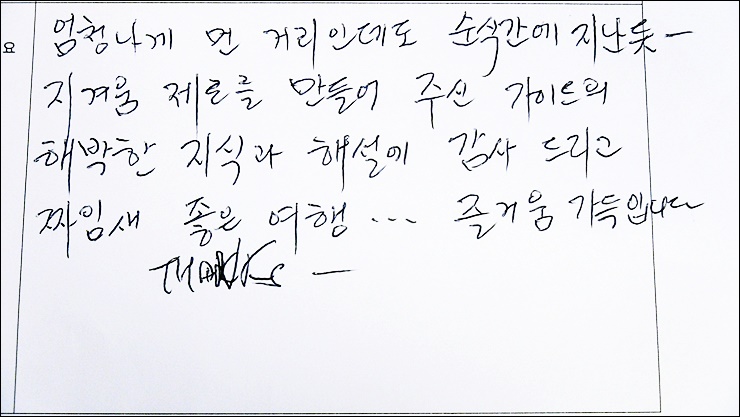 요
엄청나게 먼 거리인데도 순식간에 지난듯 -
지겨움 제로를 만들어 주신 가이드의
해박한 지식과 해설에 감사 드리고
짜임새 좋은 여행 ... 즐거움 가득입니다